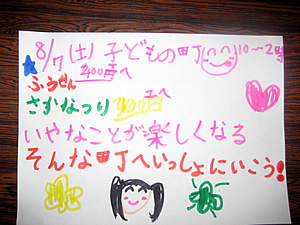 8/7(土)子どもの町 10~2時
400円へ
ふうせん
さかなつり 400円へ
いやなことが楽しくなる
そんな町へいっしょにいこう!